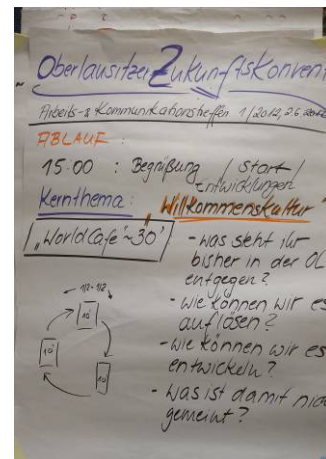 Oberlausitzer Zukunftskonvent
Arbeits- & Kommunikationstreffen 1/2012, 2.6.2012
ABLAUF :
15.00 : Begrüßung / Start /
Entwicklungen
Kernthema : "Willkommenskultur"
"World Café" ~30'
- was steht ihr
bisher in der OL
entgegen?
- wie können wir es
auflösen?
- wie können wir es
entwickeln?
- was ist damit nic
gemeint?
10'
10'
10'